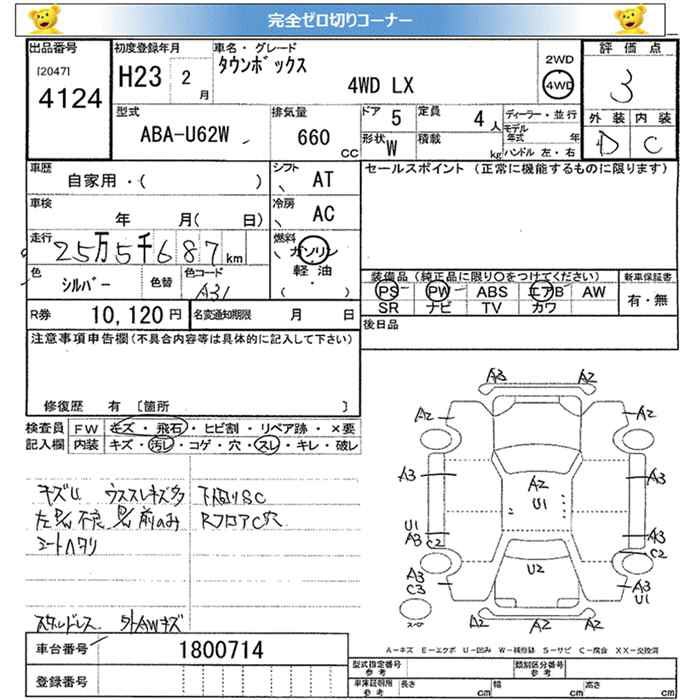 完全ゼロ切りコーナー
出品番号
[2047]
4124
初度登録年月
H23 2月
車名・グレード
タウンボックス
4WD LX
2WD
4WD
評価点
3
外装 内装
D C
型式
ABA-U62W
排気量
660 CC
ドア 5
定員 4人
形状 W
積載 kg
ディーラー・並行
モデル年式 年
ハンドル 左・右
車歴
自家用・( )
シフト AT
車検
年 月( 日)
冷房 AC
走行
25万5千687km
燃料
ガソリン
軽油
( ・ )
色
シルバー
色替
色コード
A31
R券 10,120円
名変通知期限 月 日
セールスポイント (正常に機能するものに限ります)
装備品 (純正品に限り○をつけてください)
PS PW ABS エアB AW
SR ナビ TV カワ
新車保証書
有・無
後日品
注意事項申告欄(不具合内容等は具体的に記入して下さい)
修復歴 有 [箇所 ]
検査員記入欄
FW キズ・飛石・ヒビ割・リペア跡・×要
内装 キズ・汚レ・コゲ・穴・スレ・キレ・破レ
キズU ウススレキズ多
左 不良 前のみ
シートヘタリ
下廻りSC
RフロアC穴
スタッドレス 外AWキズ
A3 A2
A2 A2
A3 A3
A2
U1
U1
A3 C2
A3
C2
U2
A3
C3
A3
U1
A2 A2 A2
A-キズ E-エクボ U-凹み W-補修跡 S-サビ C-腐食 XX-交換済
車台番号 1800714
登録番号
型式指定番号 参考
類別区分番号 参考
車庫証明用 参考
長さ cm
幅 cm
高さ cm